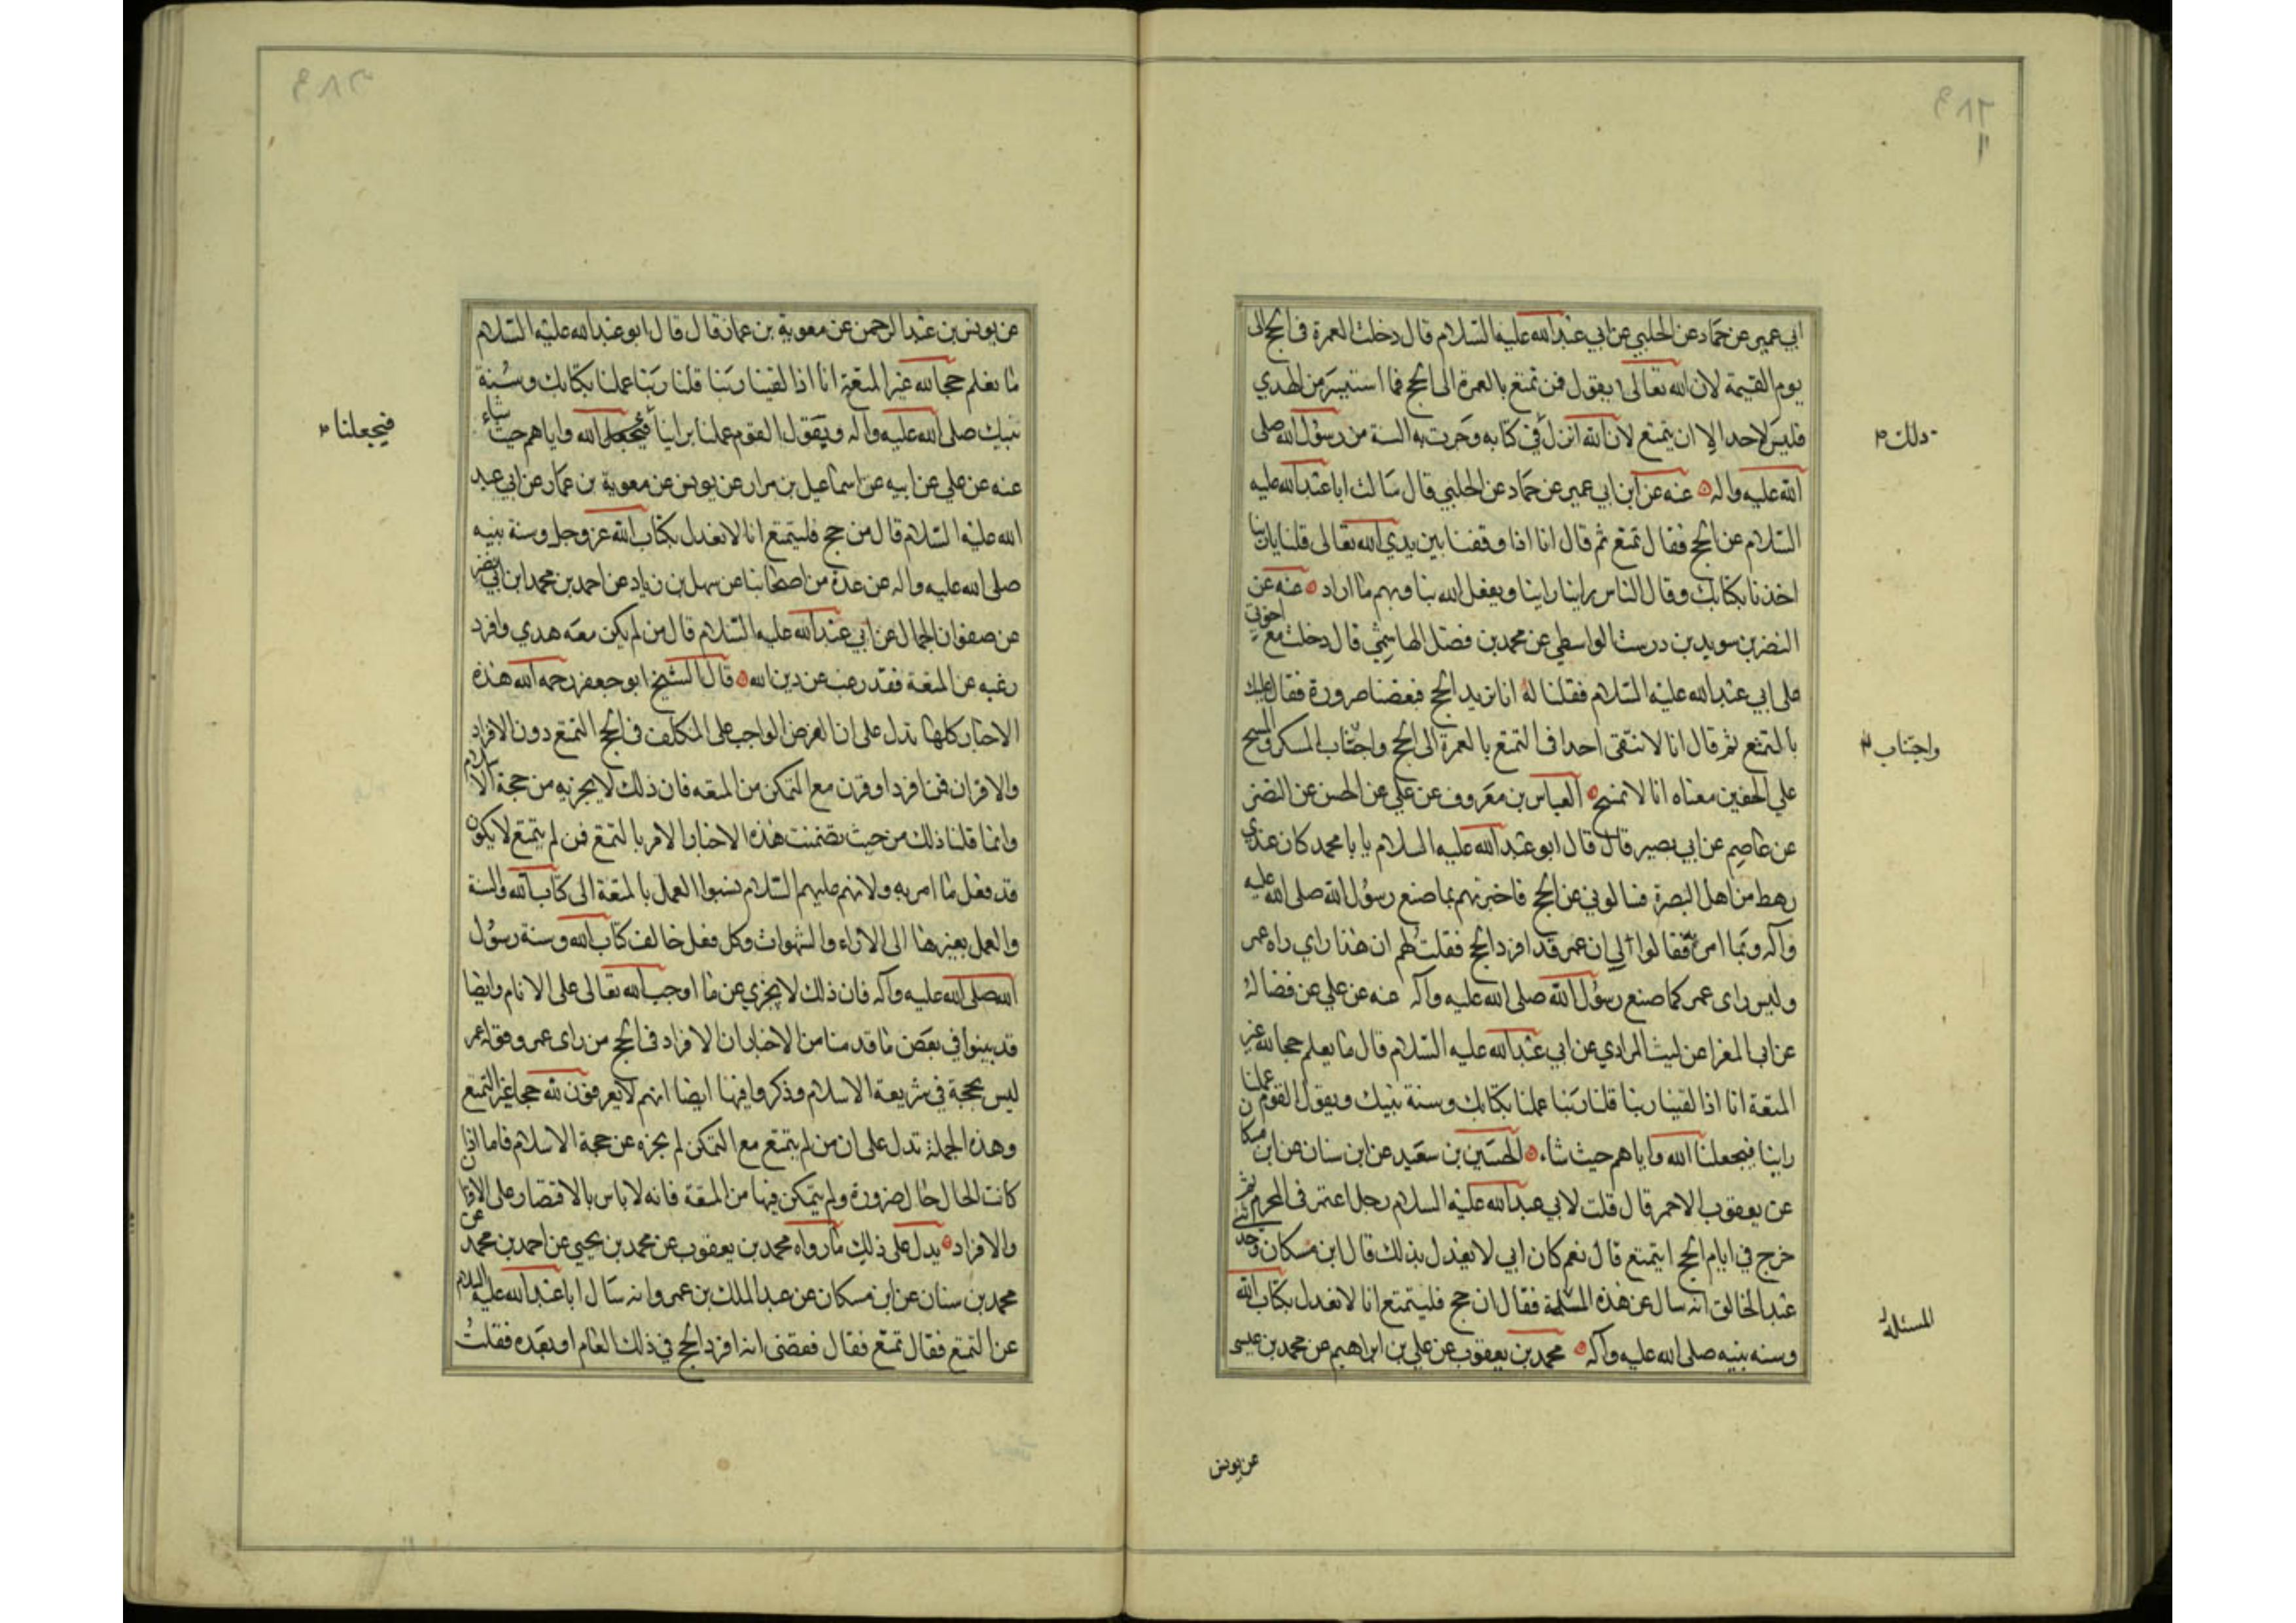 ابي عمير عن حماد عن الحلبي عن ابي عبد الله عليه السلام قال دخلت العمرة في الحج الى
يوم القيمة لان الله تعالى يقول فمن تمتع بالعمرة الى الحج فما استيسر من الهدي
فليس لاحد الا ان يتمتع لان الله انزل في كتابه وجرت به السنة من رسول الله صلى
ذلك
الله عليه واله عنه عن ابن ابي عمير عن حماد عن الحلبي قال سالت ابا عبد الله عليه
السلام عن الحج فقال تمتع ثم قال انا اذا وقفنا بين يدي الله تعالى قلنا يا ربنا
اخذنا بكتابك وقال الناس راينا راينا ويفعل الله بنا وبهم ما اراد عنه عن
النضر بن سويد بن درست الواسطي عن محمد بن فضل الهاشمي قال دخلت مع اخوتي
على ابي عبد الله عليه السلام فقلنا له انا نريد الحج فبعضنا صرورة فقال عليك
بالتمتع ثم قال انا لا نتقى احدا في التمتع بالعمرة الى الحج واجتناب المسكر والمسح
واجتناب
على الخفين معناه انا لا نمسح العباس بن معروف عن علي عن الحسن عن النضر
عن عاصم عن ابي بصير قال قال ابو عبد الله عليه السلام يا با محمد كان عندي
رهط من اهل البصرة فسالوني عن الحج فاخبرتهم بما صنع رسول الله صلى الله عليه
وآله وبما امر به فقالوا لي ان عمر قد افرد الحج فقلت لهم ان هذا راي راه عمر
وليس راى عمر كما صنع رسول الله صلى الله عليه وآله عنه عن علي عن فضاله
عن ابي المغرا عن ليث المرادي عن ابي عبد الله عليه السلام قال ما يعلم حجا لله غير
المتعة انا اذا لقينا ربنا قلنا ربنا عملنا بكتابك وسنة نبيك ويقول القوم عملنا
راينا فيجعلنا الله واياهم حيث شاء الحسين بن سعيد عن ابن سنان عن ابن مسكان
عن يعقوب الاحمر قال قلت لابي عبد الله عليه السلام رجل اعتمر في المحرم ثم
خرج في ايام الحج ايتمتع قال نعم كان ابي لا يعدل بذلك قال ابن مسكان وحدثني
عبد الخالق انه سال عن هذه المسئلة فقال ان حج فليتمتع انا لا نعدل بكتاب الله
المسئلة
وسنه نبيه صلى الله عليه وآله محمد بن يعقوب عن علي بن ابراهيم عن محمد بن عيسى
عن يونس
عن يونس بن عبد الرحمن عن معوية بن عمار قال قال ابو عبد الله عليه السلام
ما نعلم حجا لله غير المتعة انا اذا لقينا ربنا قلنا ربنا عملنا بكتابك وسنة
نبيك صلى الله عليه وآله ويقول القوم عملنا براينا فيجعل الله واياهم حيث شاء
فيجعلنا
عنه عن علي عن ابيه عن اسماعيل بن مرار عن يونس عن معوية بن عمار عن ابي عبد
الله عليه السلام قال من حج فليتمتع انا لا نعدل بكتاب الله عز وجل وسنة نبيه
صلى الله عليه واله عن عدة من اصحابنا عن سهل بن زياد عن احمد بن محمد ابن ابي نصر
عن صفوان الجمال عن ابي عبد الله عليه السلام قال من لم يكن معه هدي وافرد
رغبه عن المتعة فقد رغب عن دين الله قال الشيخ ابو جعفر رحمه الله هذه
الاخبار كلها تدل على ان الفرض الواجب على المكلف في الحج التمتع دون الافراد
والاقران فمن افرد او قرن مع التمكن من المتعه فان ذلك لا يجزيه من حجة الاسلام
وانما قلنا ذلك من حيث تضمنت هذه الاخبار الامر بالتمتع فمن لم يتمتع لا يكون
قد فعل ما امر به ولانهم عليهم السلام نسبوا العمل بالمتعة الى كتاب الله والسنة
والعمل بغيرها الى الاراء والشهوات وكل فعل خالف كتاب الله وسنة رسول
الله صلى الله عليه وآله فان ذلك لا يجزي عن ما اوجب الله تعالى على الانام وايضا
قد بينوا في بعض ما قدمنا من الاخبار ان الافراد في الحج من راى عمر وقول عمر
ليس بحجة في شريعة الاسلام وذكروا فيها ايضا انهم لا يعرفون لله حجا غير التمتع
وهذه الجملة تدل على ان من لم يتمتع مع التمكن لم يجزه عن حجة الاسلام فاما اذا
كانت الحال حال ضرورة ولم يتمكن فيها من المتعة فانه لا باس بالاقتصار على الاقران
والافراد يدل على ذلك ما رواه محمد بن يعقوب عن محمد بن يحيى عن احمد بن محمد عن
محمد بن سنان عن ابن مسكان عن عبد الملك بن عمرو انه سال ابا عبد الله عليه السلام
عن التمتع فقال تمتع فقال فقضى انه افرد الحج في ذلك العام او بعده فقلت